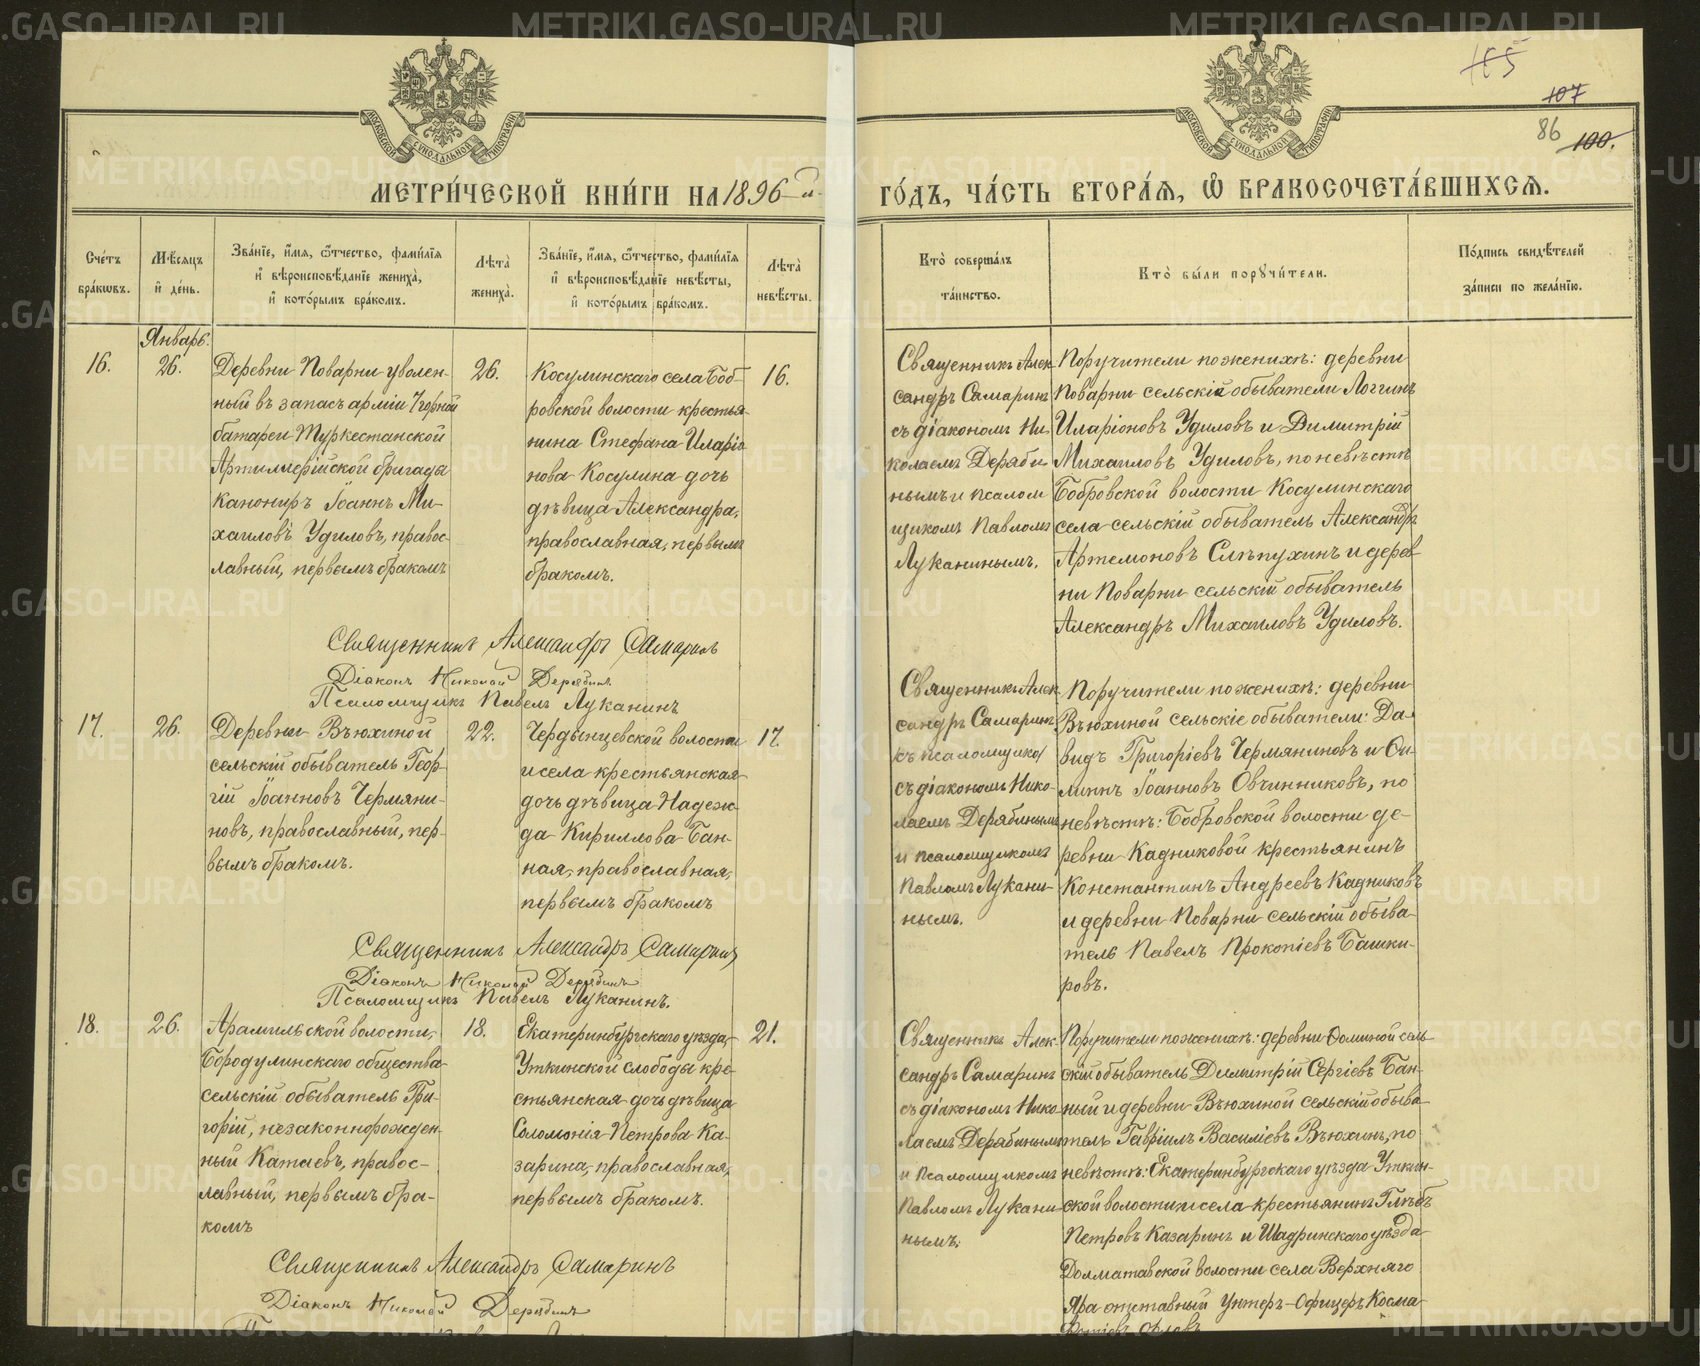 115
107
86
100.
МЕТРИ́ЧЕСКОЙ КНИ́ГИ НА 1896-й
ГО́ДЪ, ЧА́СТЬ ВТОРА́Я, Ѿ БРАКОСОЧЕТА́ВШИХСЯ.
Сче́тъ
бра́ковъ.
Мѣ́сяцъ
и҆ де́нь.
Зва́нїе, и҆́мя, ѻ҆́тчество, фами́лїя
и҆ вѣроисповѣ́данїе жениха̀,
и҆ кото́рымъ бра́комъ.
Лѣта̀
жениха̀.
Зва́нїе, и҆́мя, ѻ҆́тчество, фами́лїя
и҆ вѣроисповѣ́данїе невѣ́сты,
и҆ кото́рымъ бра́комъ.
Лѣта̀
невѣ́сты.
Кто̀ соверша́лъ
та́инство.
Кто̀ бы́ли поручи́тели.
По́дпись свидѣ́телей
за́писи по жела́нїю.
Январь.
16.
26.
Деревни Поварни уволен-
ный въ запасъ арміи 7 горной
батареи Туркестанской
Артиллерійской бригады
канониръ Іоаннъ Ми-
хаиловъ Удиловъ, правос-
лавный, первымъ бракомъ
26.
Косулинскаго села Боб-
ровской волости крестья-
нина Стефана Иларіо
нова Косулина дочь
дѣвица Александра,
православная, первымъ
бракомъ.
16.
Священникъ Алек
сандръ Самаринъ
съ діакономъ Ни
колаемъ Деряби-
нымъ и псалом
щикомъ Павломъ
Луканинымъ.
Поручители по женихѣ: деревни
Поварни сельскіе обыватели Логгинъ
Иларіоновъ Удиловъ и Димитрій
Михаиловъ Удиловъ, по невѣстѣ
Бобровской волости Косулинскаго
села сельскій обыватель Александръ
Артемоновъ Слѣпухинъ и дерев
ни Поварни сельскій обыватель
Александръ Михаиловъ Удиловъ.
Священникъ Александръ Самаринъ
Діаконъ Николай Дерябинъ
Псаломщикъ Павелъ Луканинъ
17.
26.
Деревни Вьюхиной
сельскій обыватель Геор-
гій Іоанновъ Чермяни-
новъ, православный, пер-
вымъ бракомъ.
22.
Чердынцевской волости
и села крестьянская
дочь дѣвица Надеж-
да Кириллова Бан-
ная, православная,
первымъ бракомъ
17.
Священникъ Алек
сандръ Самаринъ
съ псаломщико
съ діакономъ Нико-
лаемъ Дерябинымъ
и псаломщикомъ
Павломъ Лукани-
нымъ.
Поручители по женихѣ: деревни
Вьюхиной сельскіе обыватели: Да-
видъ Григоріевъ Чермяниновъ и Фи-
липпъ Іоанновъ Овчинниковъ, по
невѣстѣ: Бобровской волости де-
ревни Кадниковой крестьянинъ
Константинъ Андреевъ Кадниковъ
и деревни Поварни сельскій обыва-
тель Павелъ Прокопіевъ Башки-
ровъ.
Священникъ Александръ Самаринъ
Діаконъ Николай Дерябинъ
Псаломщикъ Павелъ Луканинъ.
18.
26.
Арамильской волости,
Бородулинскаго общества
сельскій обыватель Гри-
горій, незаконнорожден-
ный Катаевъ, правос-
лавный, первымъ бра-
комъ
18.
Екатеринбургскаго уѣзда,
Уткинской слободы кре-
стьянская дочь дѣвица
Соломонія Петрова Ка-
зарина, православная,
первымъ бракомъ.
21.
Священникъ Алек-
сандръ Самаринъ
съ діакономъ Нико-
лаемъ Дерябинымъ
и псаломщикомъ
Павломъ Лукани-
нымъ.
Поручители по женихѣ: деревни Фоминой сель-
скій обыватель Димитрій Сергіевъ Бан-
ный и деревни Вьюхиной сельскій обыва-
тель Гавріилъ Василіевъ Вьюхинъ, по
невѣстѣ: Екатеринбургскаго уѣзда Уткин-
ской волости и села крестьянинъ Глѣбъ
Петровъ Казаринъ и Шадринскаго уѣзда
Долматовской волости села Верхняго
Яра отставный Унтеръ-Офицеръ Косма
Фотіевъ Орловъ
Священникъ Александръ Самаринъ
Діаконъ Николай Дерябинъ
METRIKI.GASO-URAL.RU